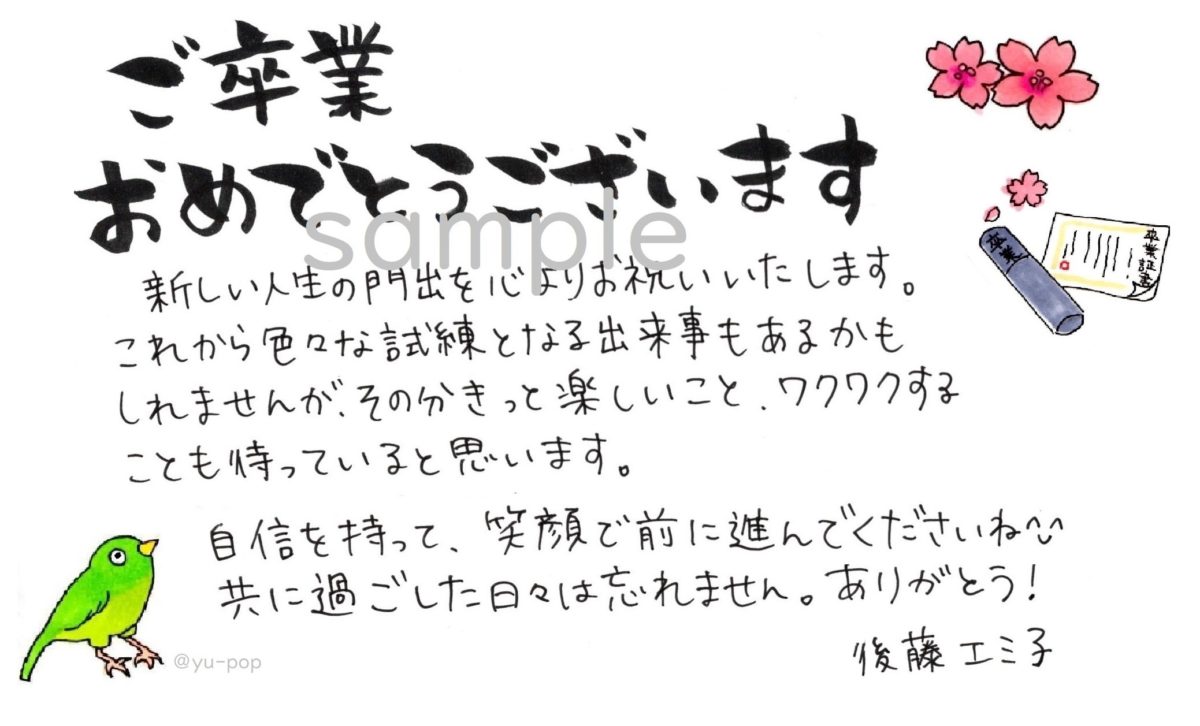 ご卒業
おめでとうございます
sample
新しい人生の門出を心よりお祝いいたします。
これから色々な試練となる出来事もあるかも
しれませんが、その分きっと楽しいこと、ワクワクする
ことも待っていると思います。
自信を持って、笑顔で前に進んでくださいね^^
共に過ごした日々は忘れません。ありがとう!
後藤エミ子
卒業
卒業証書
@yu-pop